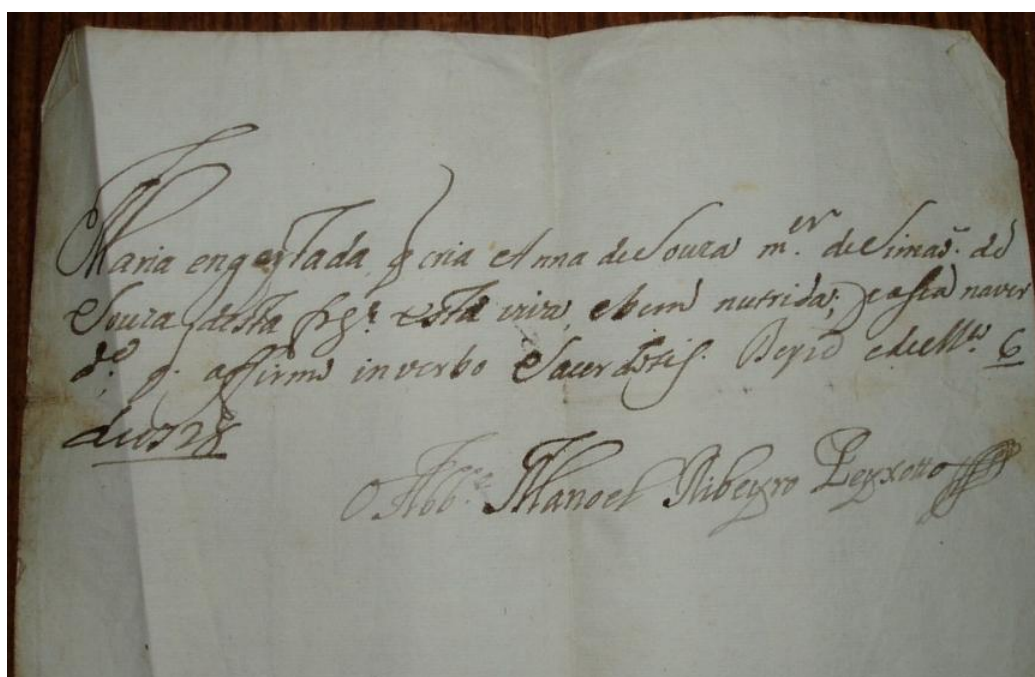 Maria engeytada q cria Anna de Souza m.er de Simaõ. de
Souza desta frg.ª está viva, e bem nutrida;
q. affirmo in verbo Sacerdotis. e de M.ço 6
de 1728
O Abb.e Manoel Ribeyro Peyxotto